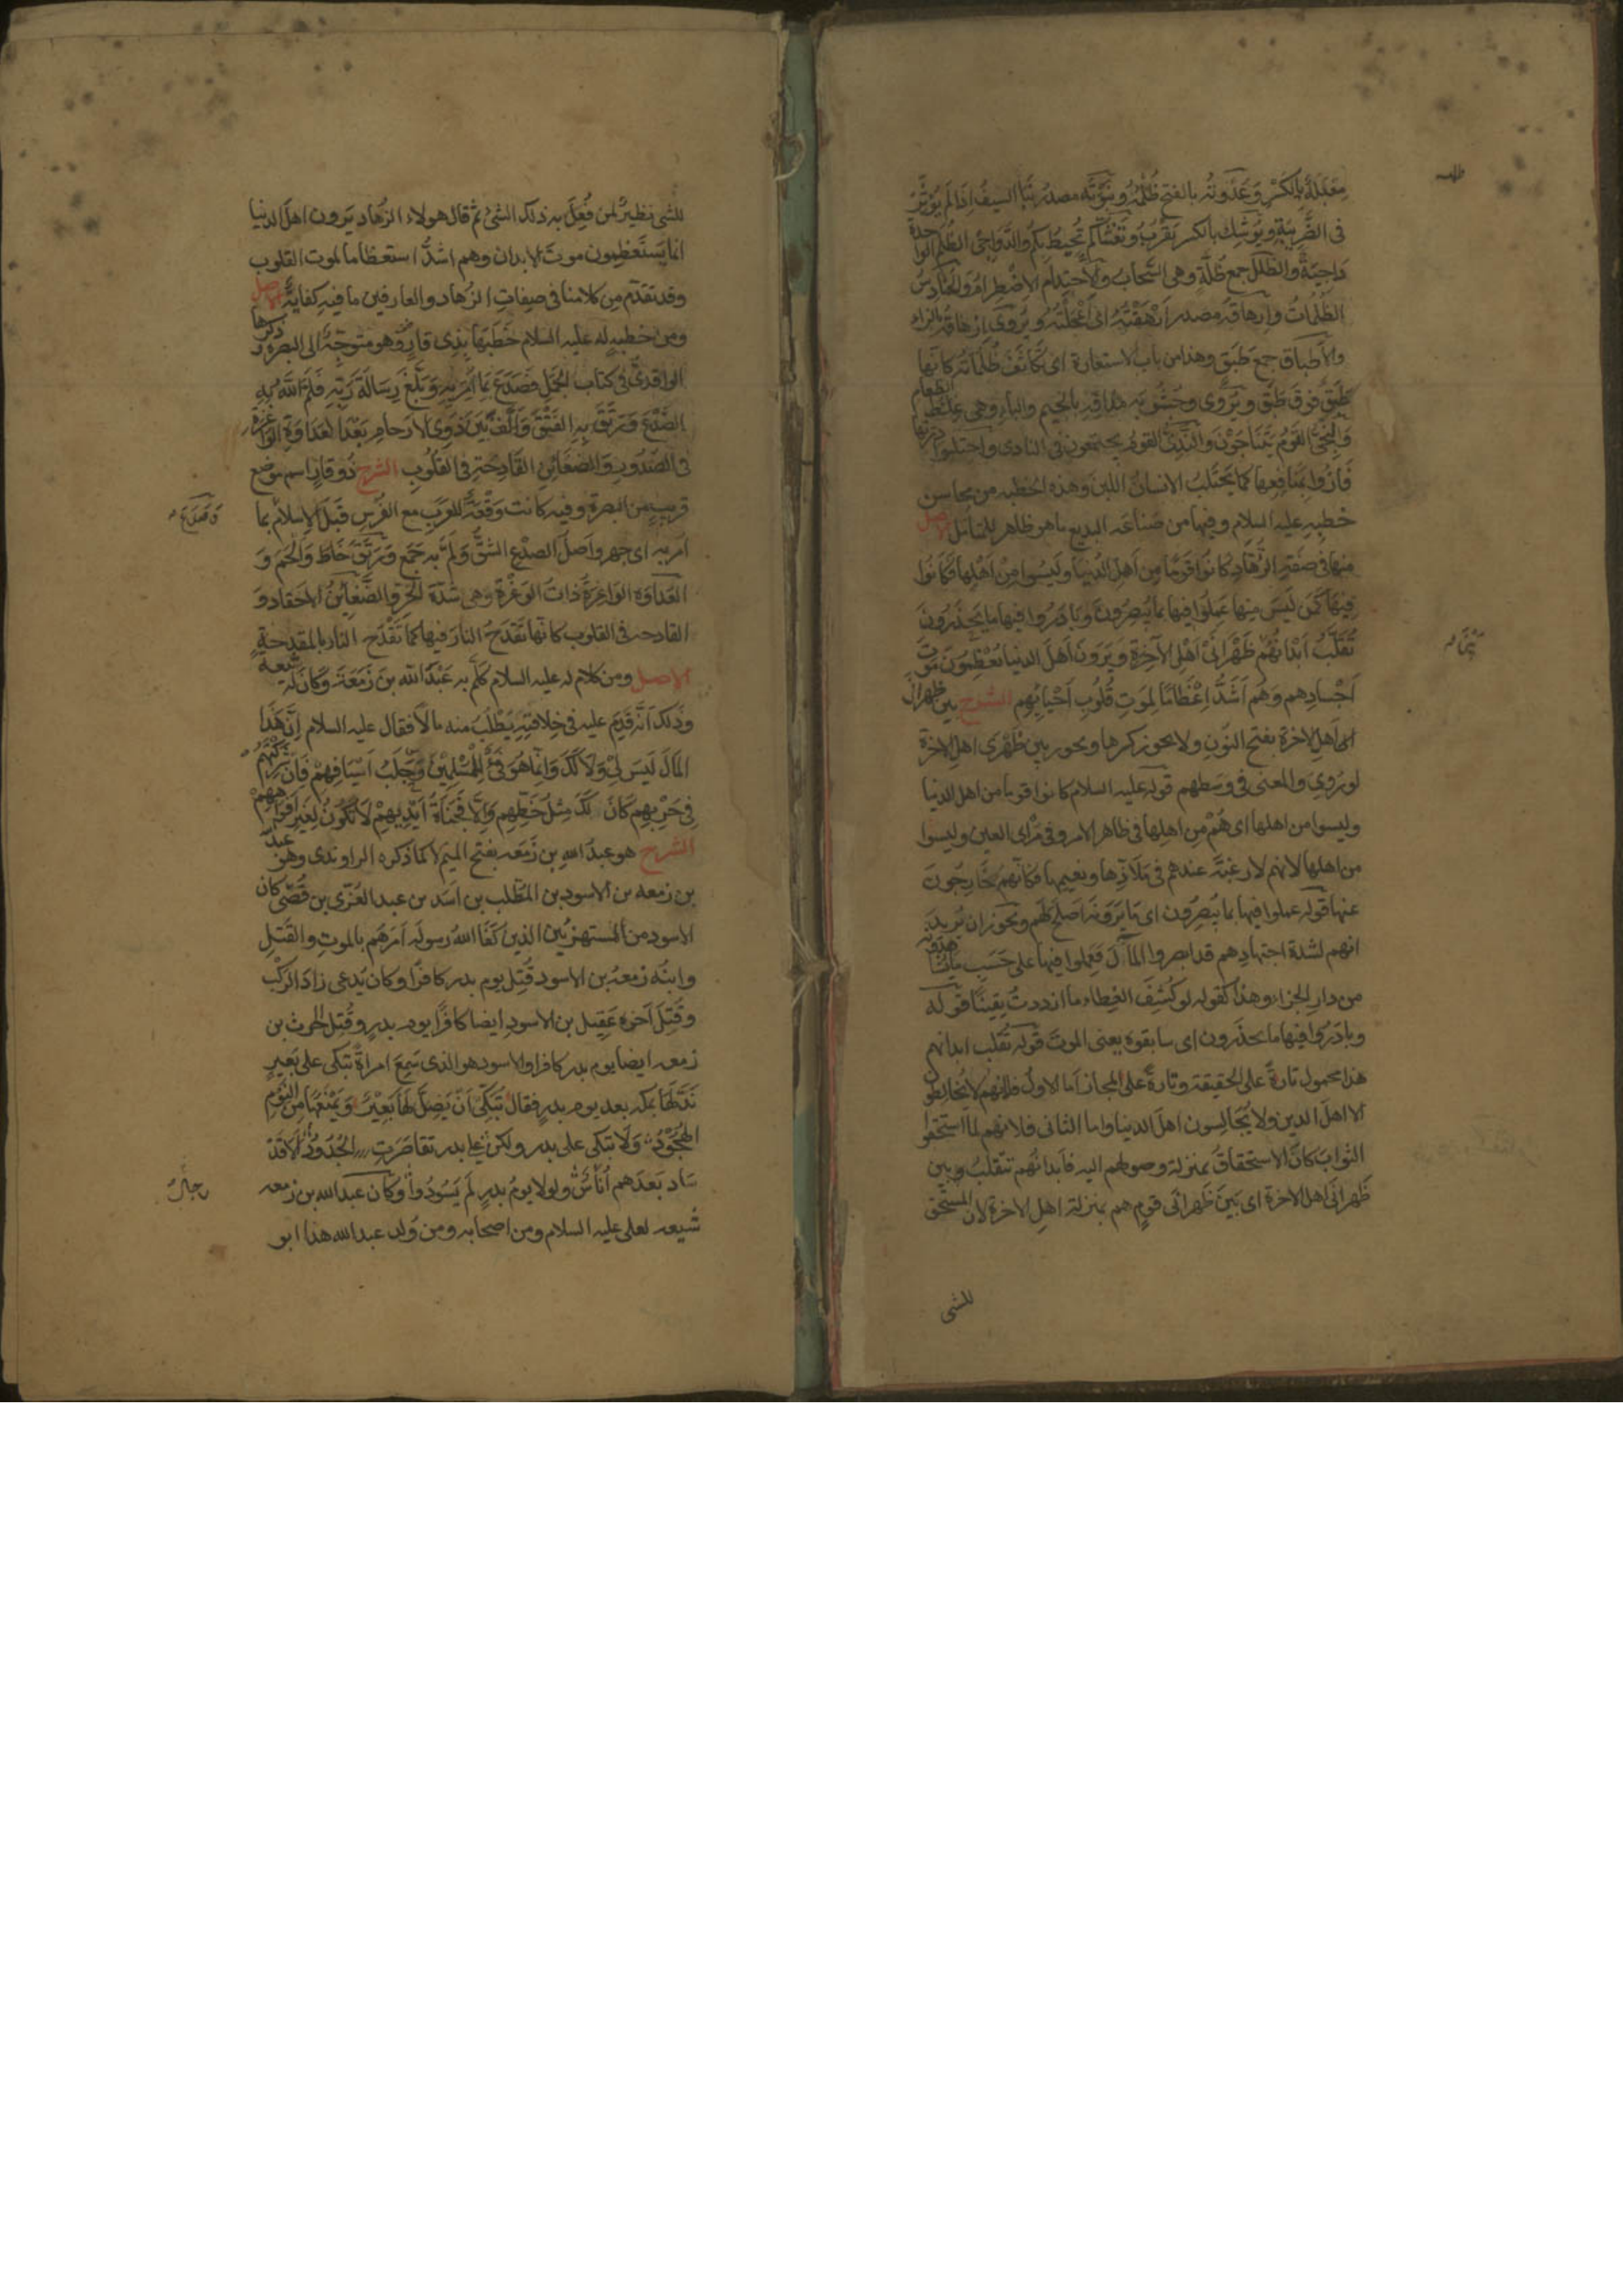 معبلة بالكسر وعدوته بالفتح ظلمه ونبوته مصدر نبا السيف اذا لم يؤثر
فى الضريبة ويوشك بالكسر يقرب وتغشاكم تحيط بكم والدواجى الظلم الواحدة
داجية والظلل جمع ظلة وهى السحاب والاحتدام الاضطرام والحنادس
الظلمات وارهاقه مصدر ارهقته اى اعجلته ويروى ازهاقه بالزاء
والاطباق جمع طبق وهذا من باب الاستعارة اى تكاثف ظلماتها كانها
طبق فوق طبق ويروى وجشوبة مذاقه بالجيم والباء وهى غلظ الطعام
والنجى القوم يتناجون والندى القوم يجتمعون فى النادى واحتلبوا درتها
فازوا بمنافعها كما يحتلب الانسان اللبن وهذه الخطبه من محاسن
خطبه عليه السلام وفيها من صناعه البديع ما هو ظاهر للمتامل الاصل
منها فى صفة الزهاد كانوا قوما من اهل الدنيا وليسوا من اهلها فكانوا
فيها كمن ليس منها عملوا فيها بما يبصرون وبادروا فيها ما يحذرون
تقلب ابدانهم ظهرانى اهل الآخرة ويرون اهل الدنيا يعظمون موت
اجسادهم وهم اشد اعظاما لموت قلوب احيائهم الشرح بين ظهرانى
اهل الاخرة بفتح النون ولا يجوز كسرها ويجوز بين ظهرى اهل الاخرة
لو روى والمعنى فى وسطهم قوله عليه السلام كانوا قوما من اهل الدنيا
وليسوا من اهلها اى هم من اهلها فى ظاهر الامر وفى مرأى العين وليسوا
من اهلها لانهم لا رغبة عندهم فى ملاذها ونعيمها فكانهم خارجون
عنها قوله عملوا فيها بما يبصرون اى بما يرونه اصلح لهم ويجوز ان يريد
انهم لشدة اجتهادهم قد ابصروا المآل فعملوا فيها على حسب ما يشاهدونه
من دار الجزاء وهذا كقوله لو كشف الغطاء ما ازددت يقينا قوله
وبادروا فيها ما يحذرون اى سابقوه يعنى الموت قوله تقلب ابدانهم
هذا محمول تارة على الحقيقة وتارة على المجاز اما الاول فلانهم لا يخالطون
الا اهل الدين ولا يجالسون اهل الدنيا واما الثانى فلانهم لما استحقوا
الثواب كان الاستحقاق بمنزلة وصولهم اليه فابدانهم تتقلب وبين
ظهرانى اهل الاخرة اى بين ظهرانى قوم هم بمنزلة اهل الاخرة لان المستحق
للشى
للشى نظير لمن فعل به ذلك الشىء ثم قال هولاء الزهاد يرون اهل الدنيا
انما يستعظمون موت الابدان وهم اشد استعظاما لموت القلوب
وقد تقدم من كلامنا فى صفات الزهاد والعارفين ما فيه كفاية الاصل
ومن خطبه له عليه السلام خطبها بذى قار وهو متوجه الى البصرة ذكرها
الواقدى فى كتاب الجمل فصدع بما امر به وبلغ رسالة ربه فلم الله به
الصدع ورتق به الفتق والف بين ذوى الارحام بعد العداوة الواغرة
فى الصدور والضغائن القادحة فى القلوب الشرح ذو قار اسم موضع
قريب من البصرة وفيه كانت وقعة للعرب مع الفرس قبل الاسلام بما
فصدع
امر به اى جهر واصل الصدع الشق ولم به جمع ورتق خاط والحم و
العداوة الواغرة ذات الوغرة وهى شدة الحر والضغائن الاحقاد و
القادحه فى القلوب كانها تقدح النار فيها كما تقدح النار بالمقدحة
الاصل ومن كلام له عليه السلام كلم به عبد الله بن زمعة وكان له شيعة
وذلك انه قدم عليه فى خلافته يطلب منه مالا فقال عليه السلام ان هذا
المال ليس لى ولا لك وانما هو فىء للمسلمين وجلب اسيافهم فان شركتهم
فى حربهم كان لك مثل حظهم والا فجناة ايديهم لا تكون لغير افواههم
الشرح هو عبد الله بن زمعه بفتح الميم لا كما ذكره الراوندى وهو عبد
بن زمعه بن الاسود بن المطلب بن اسد بن عبد العزى بن قصى كان
الاسود من المستهزئين الذين كفا الله رسوله امرهم بالموت والقتل
وابنه زمعة بن الاسود قتل يوم بدر كافرا وكان يدعى زاد الركب
وقتل اخوه عقيل بن الاسود ايضا كافرا يوم بدر وقتل الحرث بن
زمعه ايضا يوم بدر كافرا والاسود هو الذى سمع امراة تبكى على بعير
تضله بمكه بعد يوم بدر فقال تبكى ان يضل لها بعير ويمنعها من النوم
الهجود ولا تبكى على بدر ولكن على بدر تقاصرت الجدود الا قد
ساد بعدهم اناس ولولا يوم بدر لم يسودوا وكان عبد الله بن زمعه
رجال
شيعه لعلى عليه السلام ومن اصحابه ومن ولد عبد الله هذا ابو